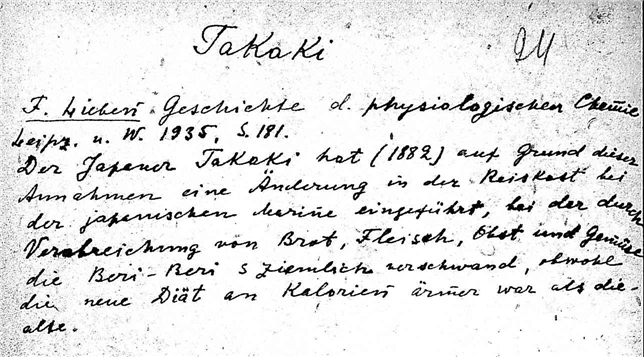 Takaki
F. Lieben Geschichte d. physiologischen Chemie
Leipz. u. W. 1935, S. 181.
Der Japaner Takaki hat (1882) auf Grund dieser
Annahmen eine Änderung in der Reiskost bei
der japanischen Marine eingeführt, bei der durch
Verabreichung von Brot, Fleisch, Obst und Gemüse
die Beri-Beri ziemlich verschwand, obwohl
die neue Diät an Kalorien ärmer war als die
alte.